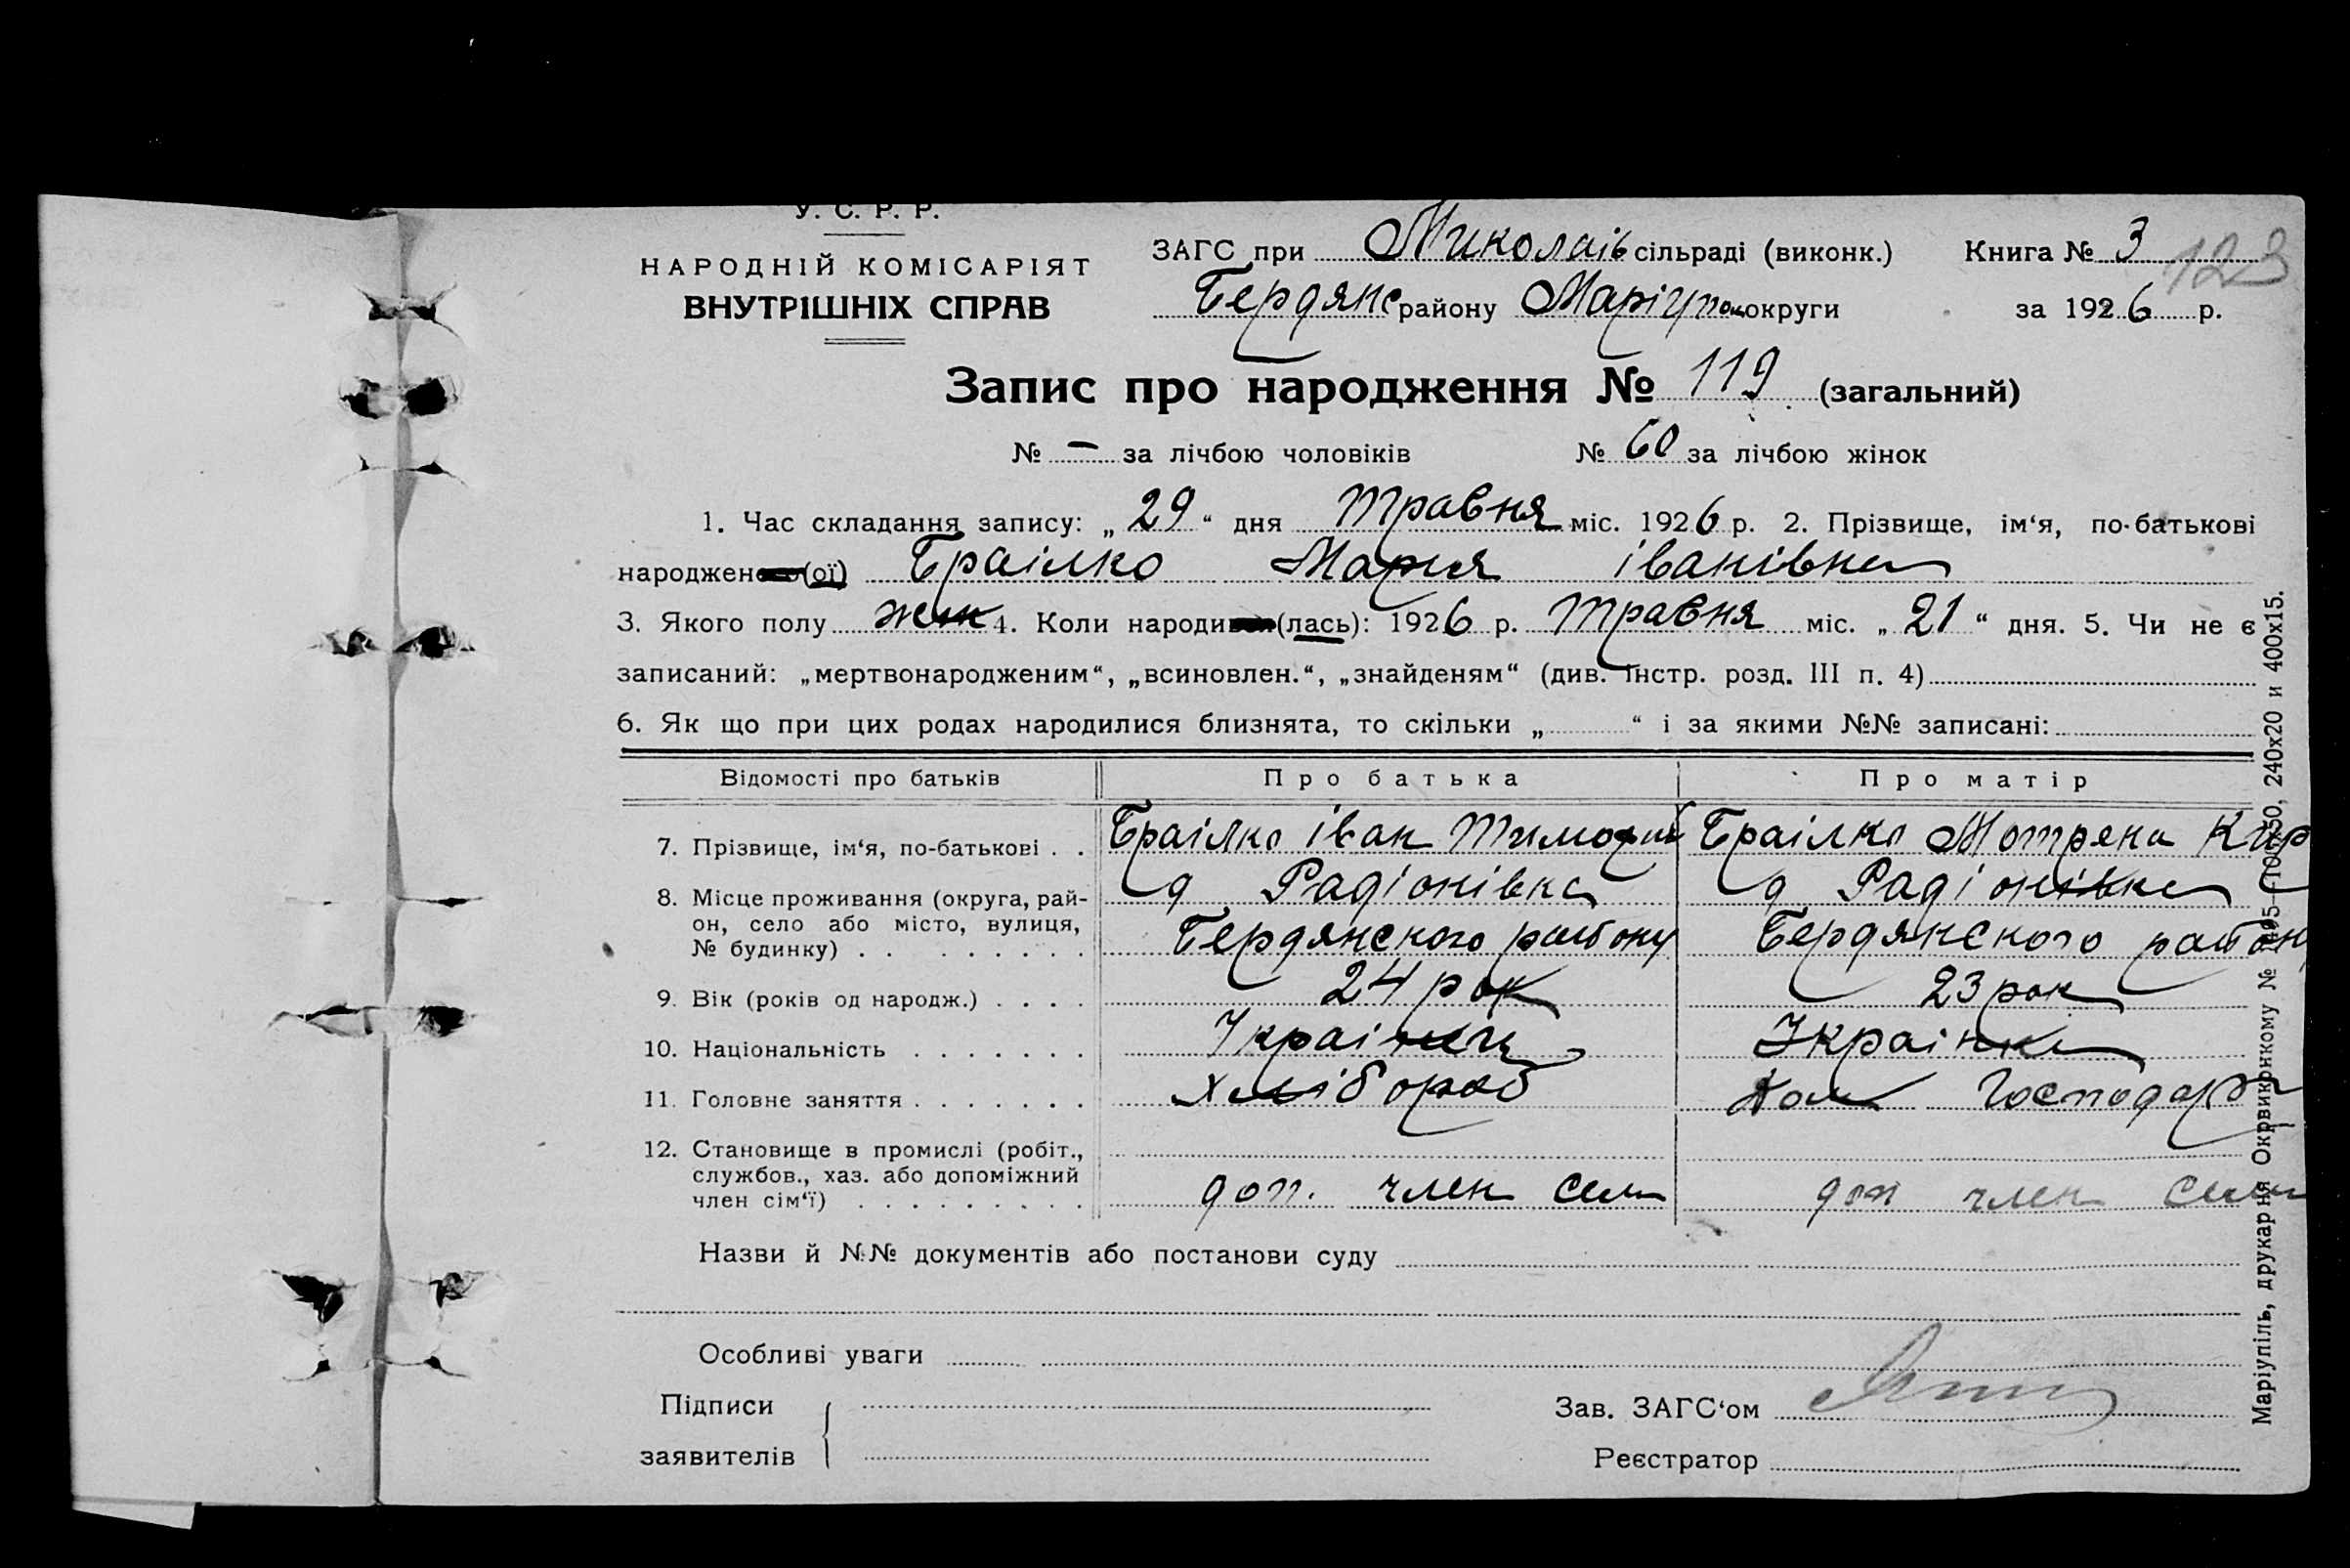 У. С. Р. Р.
НАРОДНІЙ КОМІСАРІЯТ
ВНУТРІШНІХ СПРАВ
ЗАГС при Миколаів сільраді (виконк.) Книга № 3
123
Бердянс району Маріуполь округи за 1926 р.
Запис про народження № 119 (загальний)
№ – за лічбою чоловіків № 60 за лічбою жінок
1. Час складання запису: „29“ дня травня міс. 1926 р. 2. Прізвище, ім‘я, по-батькові
народжен (ої) Браілко Мария іванівна
3. Якого полу жін 4. Коли народи (лась): 1926 р. травня міс. „21“ дня. 5. Чи не є
записаний: „мертвонародженим“, „всиновлен.“, „знайденям“ (див. Інстр. розд. III п. 4)
6. Як що при цих родах народилися близнята, то скільки „ “ і за якими №№ записані:
Відомості про батьків Про батька Про матір
7. Прізвище, ім‘я, по-батькові . . Браілко іван Браілко Мотрена Кир
8. Місце проживання (округа, рай-
он, село або місто, вулиця,
№ будинку) . . . . . . . .
д Радіонівка д Радіонівка
Бердянского району Бердянского район
9. Вік (років од народж.) . . . . 24 рок 23 рок
10. Національність . . . . . . . Україниц Українка
11. Головне заняття . . . . . . . хлібороб дом господар
12. Становище в промислі (робіт.,
службов., хаз. або допоміжний
член сім‘ї) . . . . . . . . .
доп. член сем доп член сем
Назви й №№ документів або постанови суду
Особливі уваги
Підписи
заявителів
Зав. ЗАГС‘ом
Реєстратор
Маріупіль, друкарня Окрвиконкому № 240x20 и 400x15.